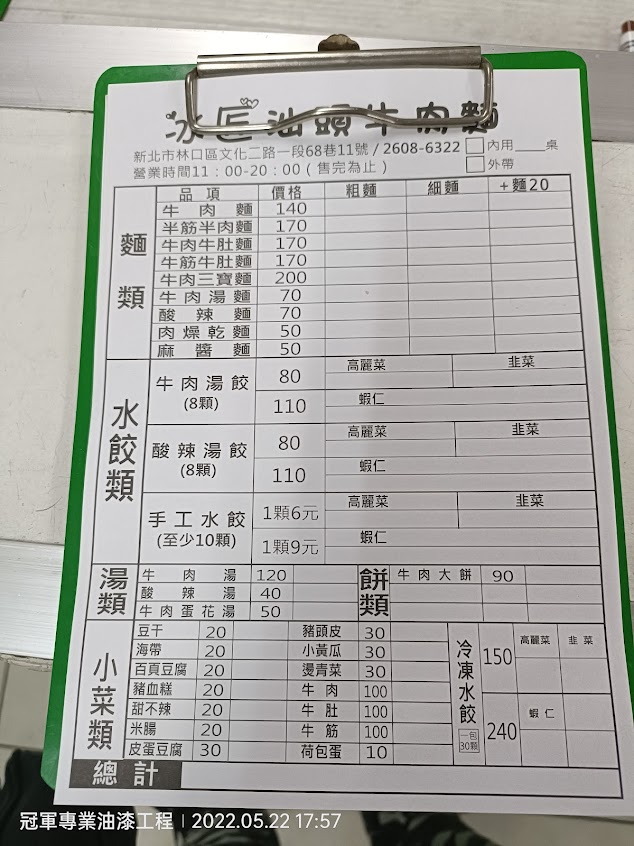 冰匠汕頭牛肉麵
新北市林口區文化二路一段68巷11號 / 2608-6322 內用____桌
營業時間11：00-20：00 ( 售完為止 ) 外帶
品項 價格 粗麵 細麵 +麵20
麵類
牛肉麵 140
半筋半肉麵 170
牛肉牛肚麵 170
牛筋牛肚麵 170
牛肉三寶麵 200
牛肉湯麵 70
酸辣麵 70
肉燥乾麵 50
麻醬麵 50
水餃類
牛肉湯餃 (8顆) 80 高麗菜 韭菜
110 蝦仁
酸辣湯餃 (8顆) 80 高麗菜 韭菜
110 蝦仁
手工水餃 (至少10顆) 1顆6元 高麗菜 韭菜
1顆9元 蝦仁
湯類
牛肉湯 120
酸辣湯 40
牛肉蛋花湯 50
餅類
牛肉大餅 90
小菜類
豆干 20 豬頭皮 30
海帶 20 小黃瓜 30
百頁豆腐 20 燙青菜 30
豬血糕 20 牛肉 100
甜不辣 20 牛肚 100
米腸 20 牛筋 100
皮蛋豆腐 30 荷包蛋 10
冷凍水餃 一包30顆
150 高麗菜 韭菜
240 蝦仁
總計
冠軍專業油漆工程 | 2022.05.22 17:57